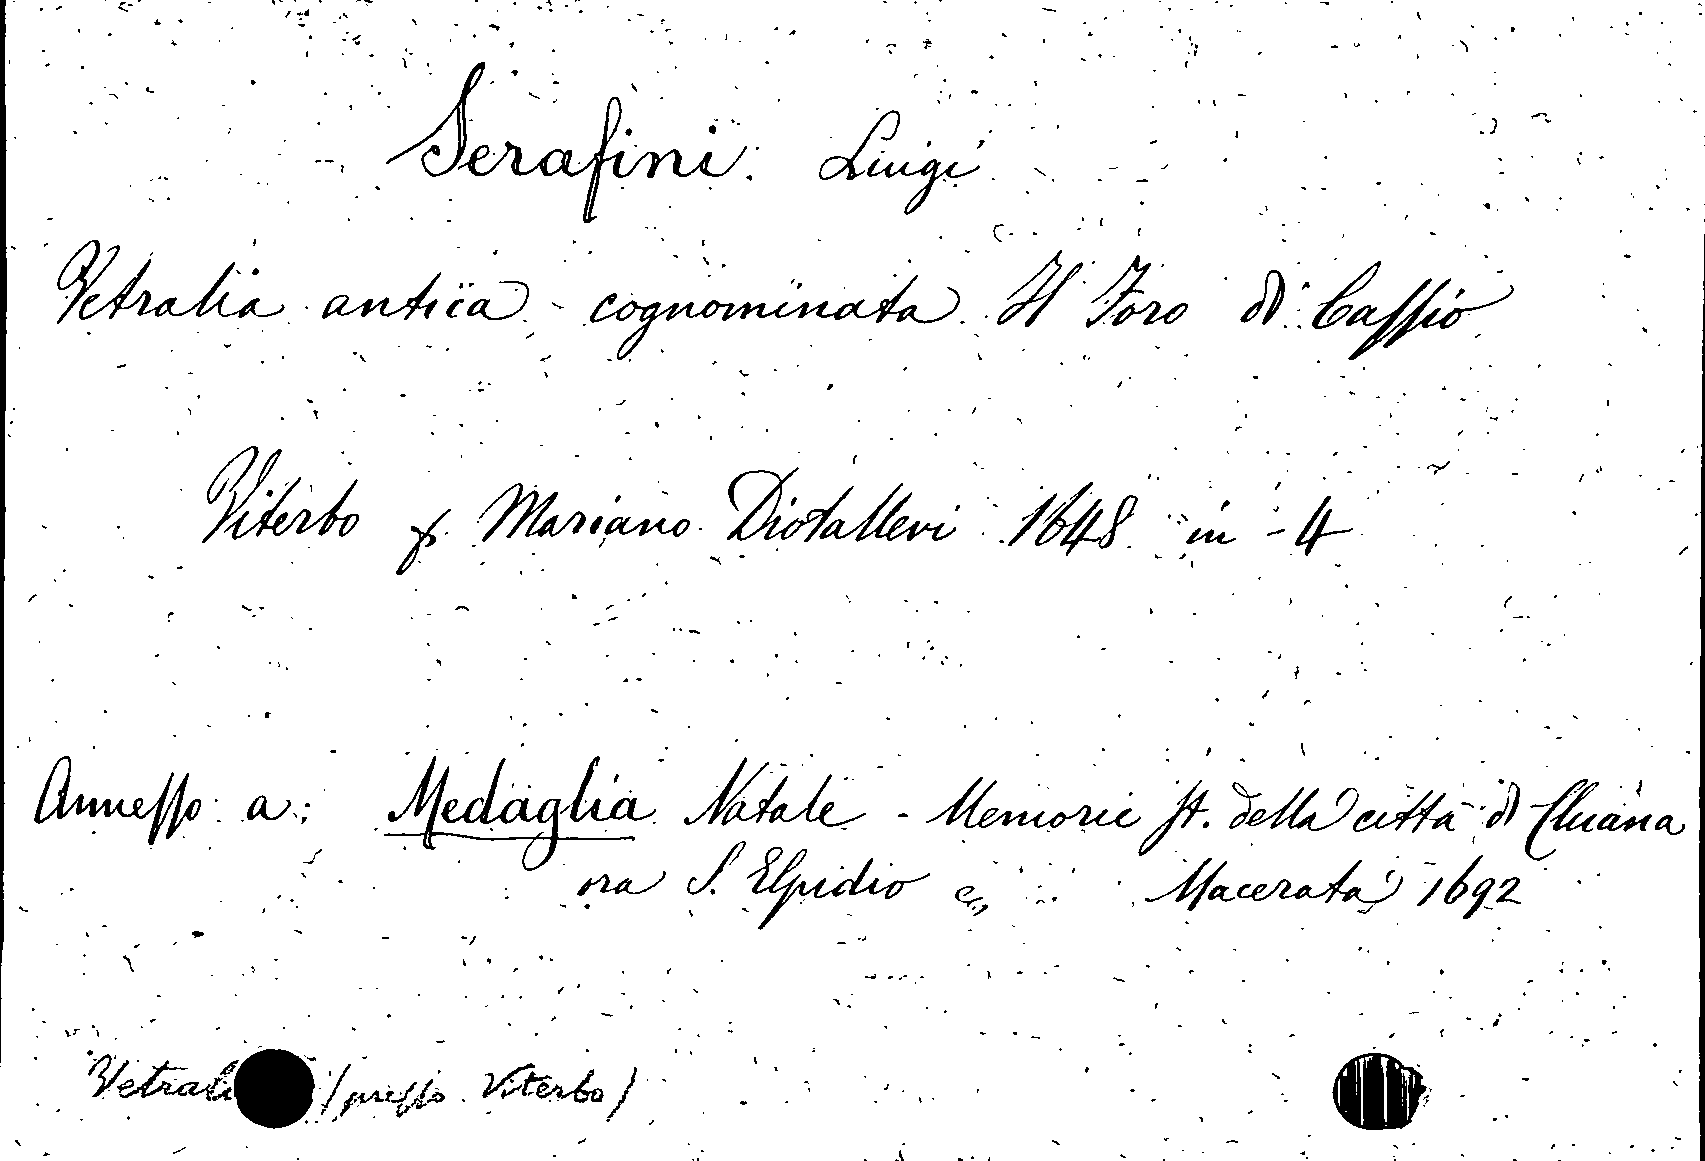 Serafini. Luigi
Vetralla antica cognominata Il Foro di Cassio
Viterbo p. Mariano Diotallevi 1648 in-4
Annesso a: Medaglia Natale - Memorie st. della città di Cluana
ora S. Elpidio etc. Macerata 1692
Vetral (presso Viterbo)